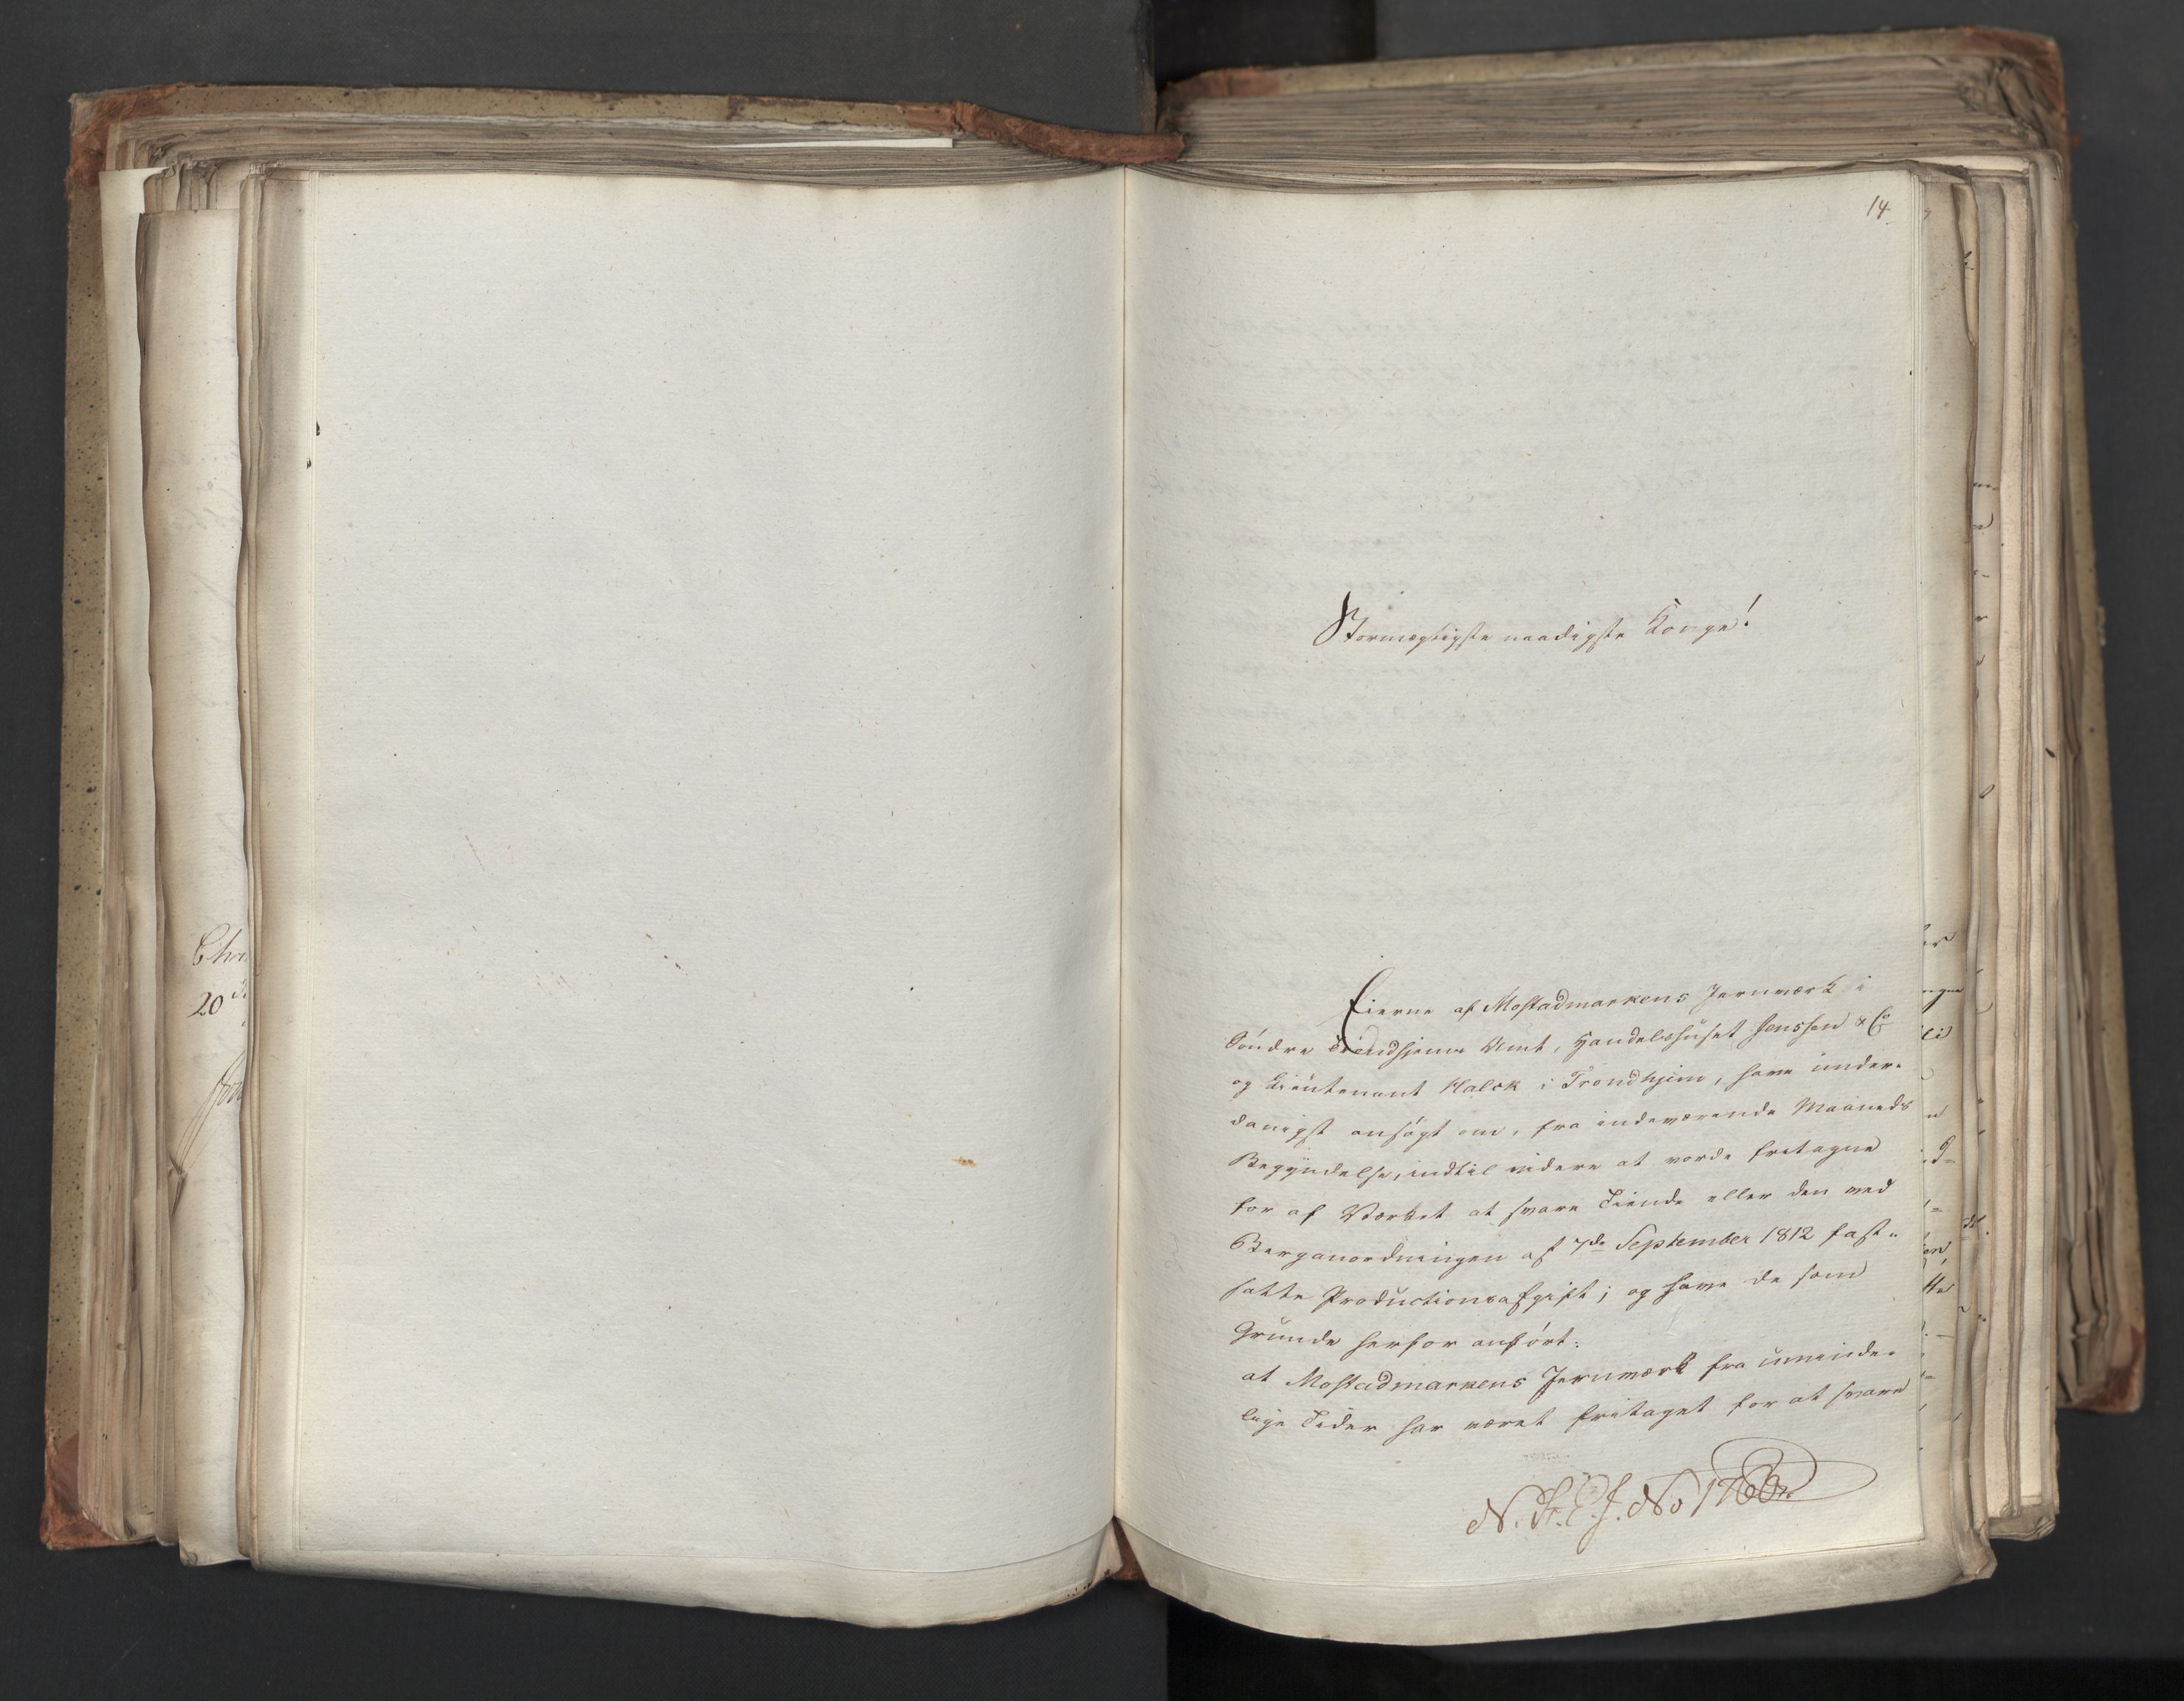 14.
Stormægtigste naadigste Konge!
Eierne af Mostadmarkens Jernværk i
Söndre Trondhjems Amt, Handelshuset Jenssen & Co
og Lieutenant Halck i Trondhjem, have under-
danigst ansøgt om, fra indeværende Maaneds
Begyndelse, indtil videre at vorde fritagne
for af Værket at svare Tiende eller den ved
Berganordningen af 7de September 1812 fast-
satte Productionsafgift; og have de som
Grunde herfor anført:
at Mostadmarkens Jernværk fra uminde-
lige Tider har været fritaget for at svare
Chri
20